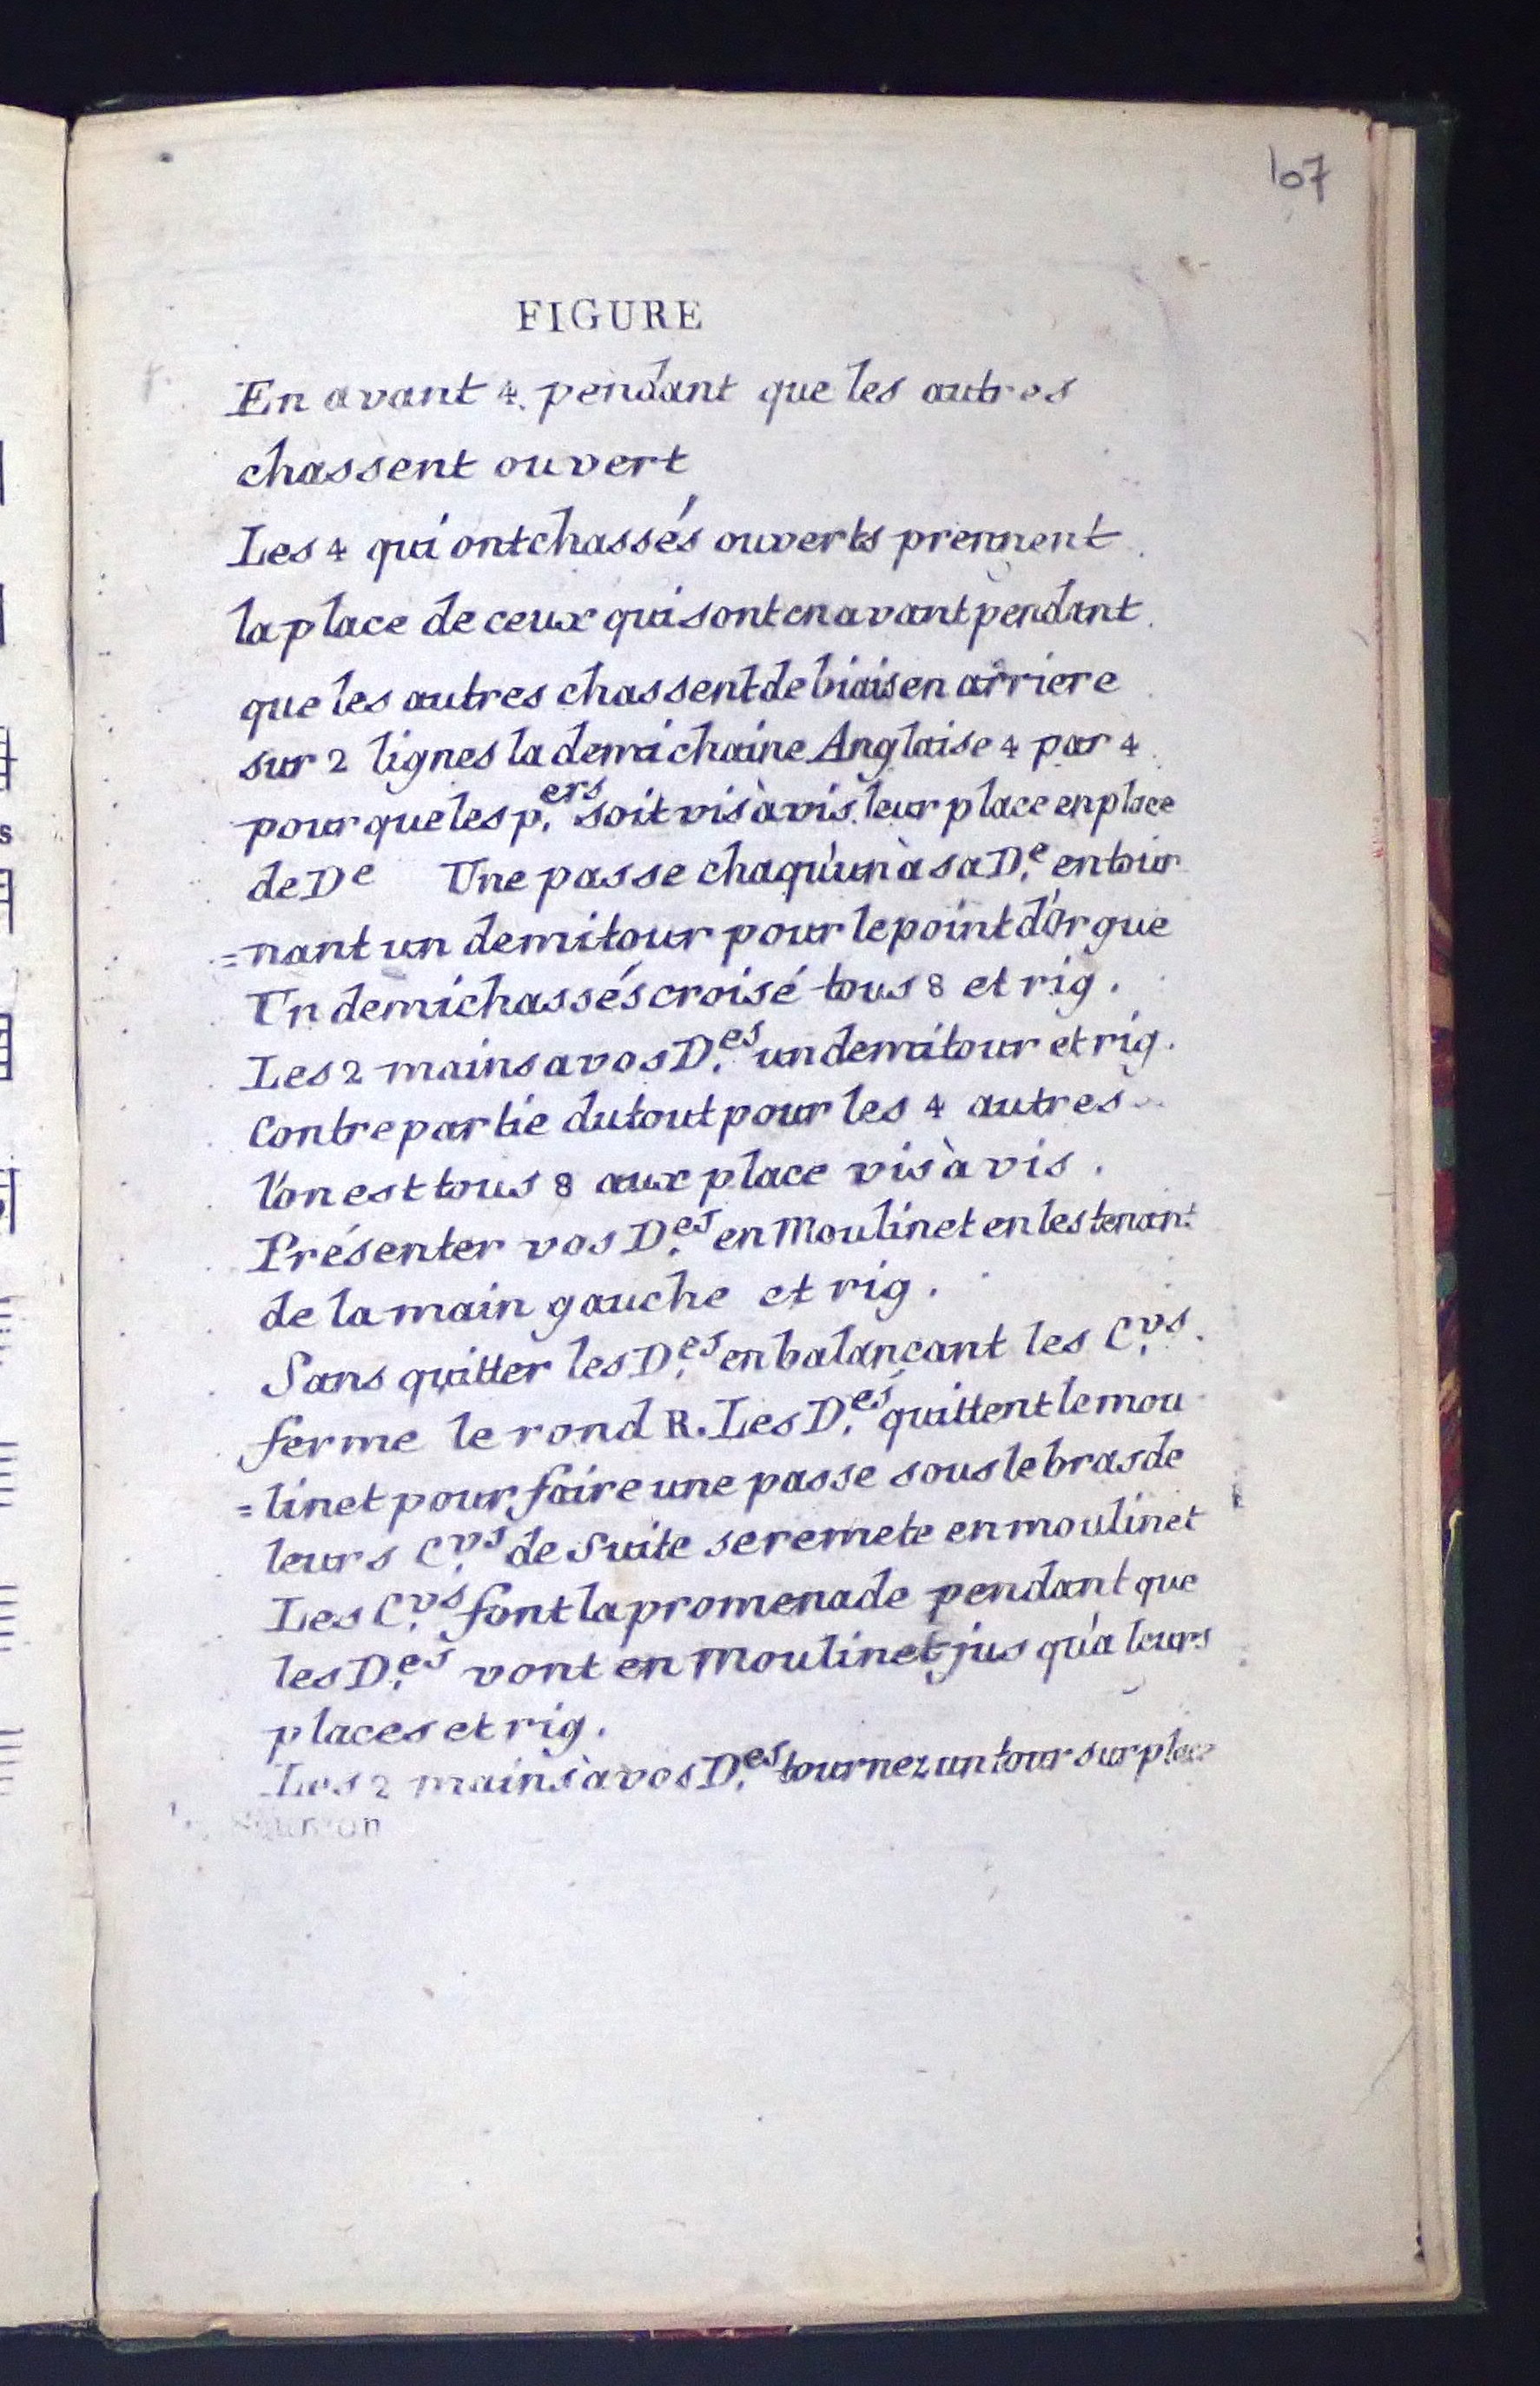 107
FIGURE
En avant 4. pendant que les autres
chassent ouvert
Les 4 qui ont chassés ouverts prennent
la place de ceux qui sont en avant pendant
que les autres chassent de biais en arriere
sur 2 lignes la demi chaine Anglaise 4 par 4
pour que les p.ers soit vis à vis. leur place en place
de De Une passe chaqu'un à sa D.e en tour
=nant un demi tour pour le point d'Orgue
Un demi chassés croisé tous 8 et rig.
Les 2 mains a vos D.es un demi tour et rig.
Contre partie du tout pour les 4 autres
l'on est tous 8 aux place vis à vis.
Présenter vos D.es en Moulinet en les tenant
de la main gauche et rig.
Sans quitter les D.es en balançant les C.vs.
ferme le rond R. Les D.es quittent le mou
=linet pour faire une passe sous le bras de
leurs C.vs de suite se remete en moulinet
Les C.vs font la promenade pendant que
les D.es vont en Moulinet jus qu'a leurs
places et rig.
Les 2 mains à vos D.es tournez un tour sur place